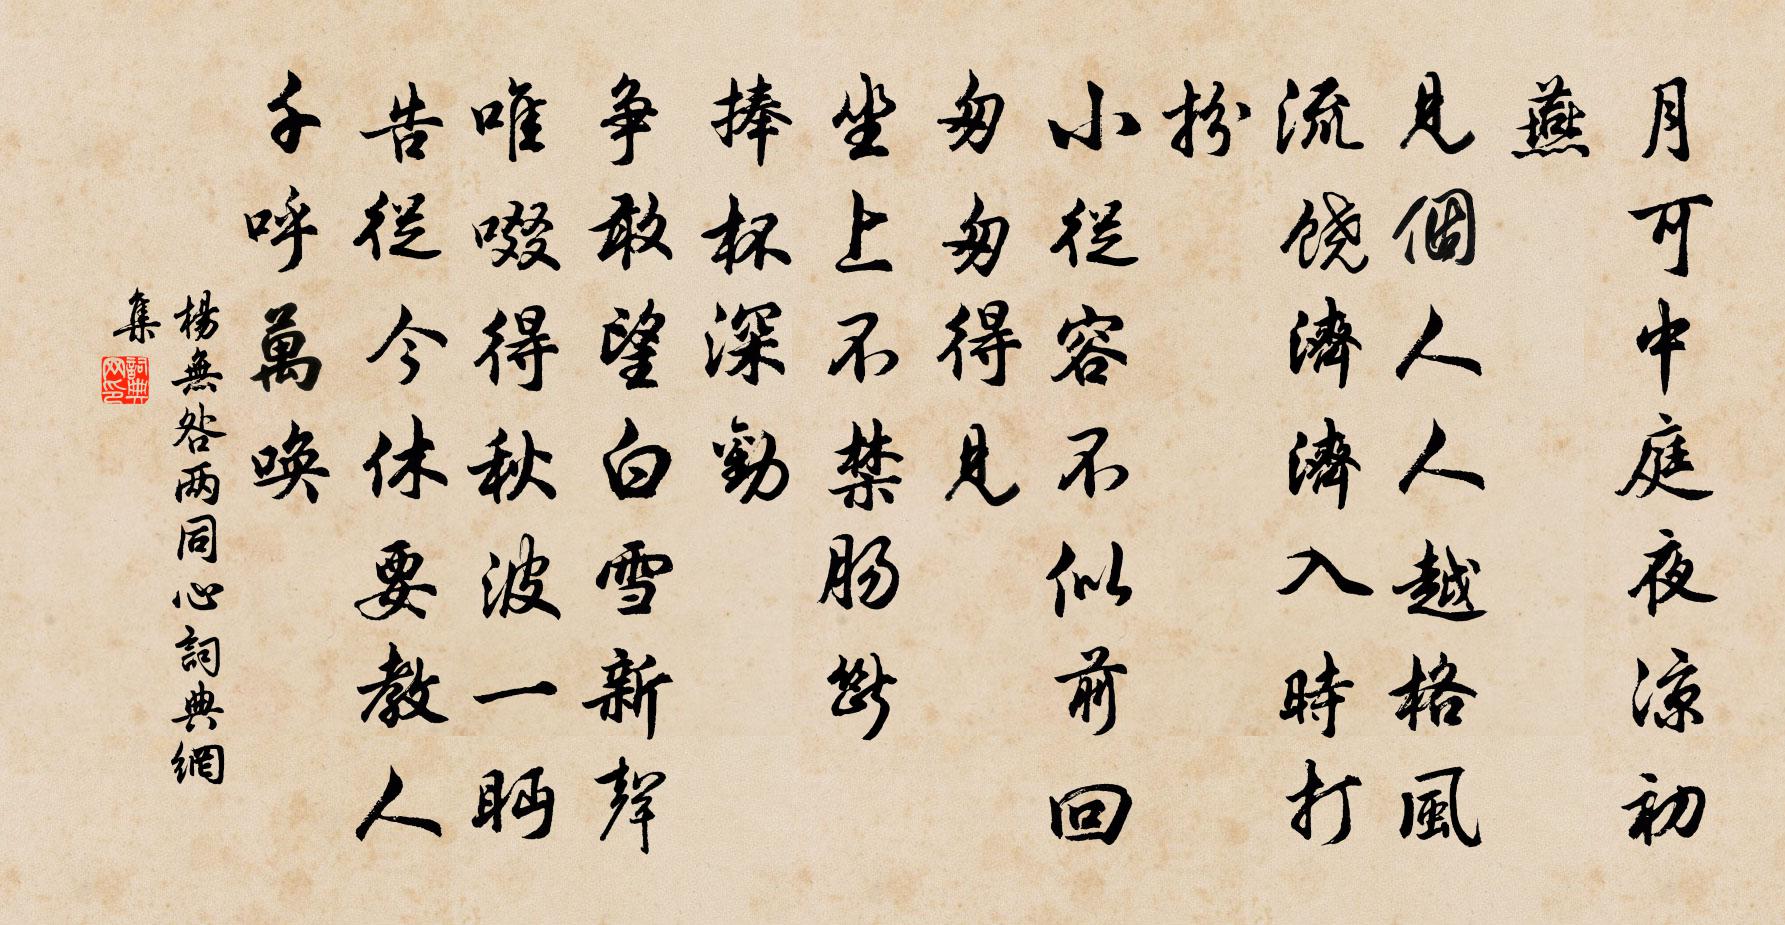 月可中庭夜凉初
燕
見個人人越格風
流饶濟濟入時打
扮
小從容不似前回
匆匆得見
坐上不禁肠斷
捧杯深勸
争敢望白雪新聲
唯啜得秋波一眄
告從今休要教人
千呼萬唤
楊無咎两同心詞典網
集
詞典网印